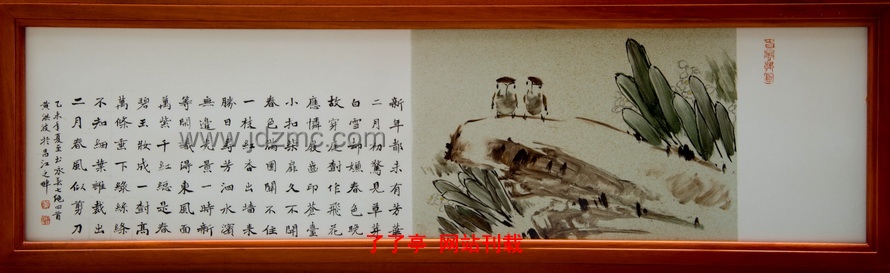 新年都未有芳華
二月初驚見草芽
白雪卻嫌春色晚
故穿庭樹作飛花
應憐屐齒印蒼臺
小扣柴扉久不開
春色滿園關不住
一枝紅杏出墻來
勝日尋芳泗水濱
無邊光景一時新
等閒識得東風面
萬紫千紅總是春
碧玉妝成一樹高
萬條垂下綠絲絛
不知細葉誰裁出
二月春風似剪刀
乙未年夏至 七絕四首
黃洪波於昌江之畔
www.jdzmc.com
了了亭 网站刊载